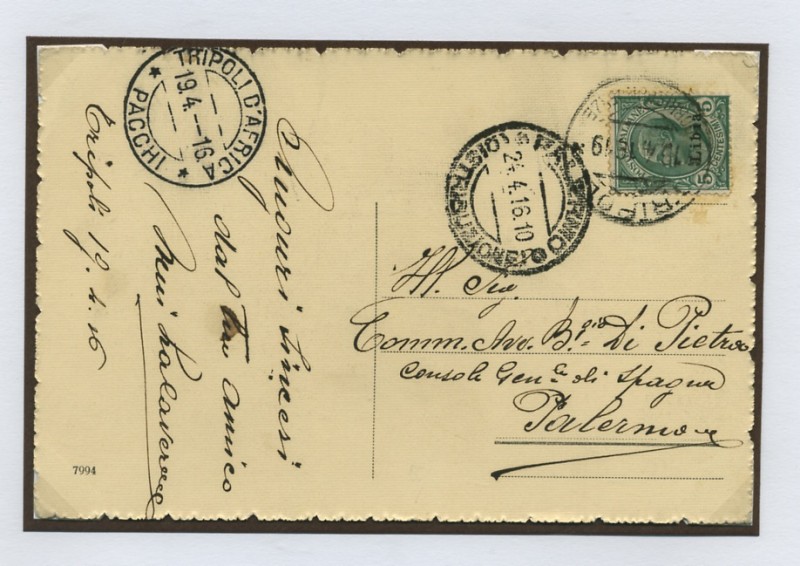 TRIPOLI D'AFRICA
19.4.-16A
* PACCHI *
Tripoli 19.4.16
Auguri sincesi
dal tuo amico
PALERMO
24.4.16.10
Libia
5
Ill. Sig.
Comm. Avv. B.gio Di Pietro
Console Gen.le di Spagna
Palermo
7994